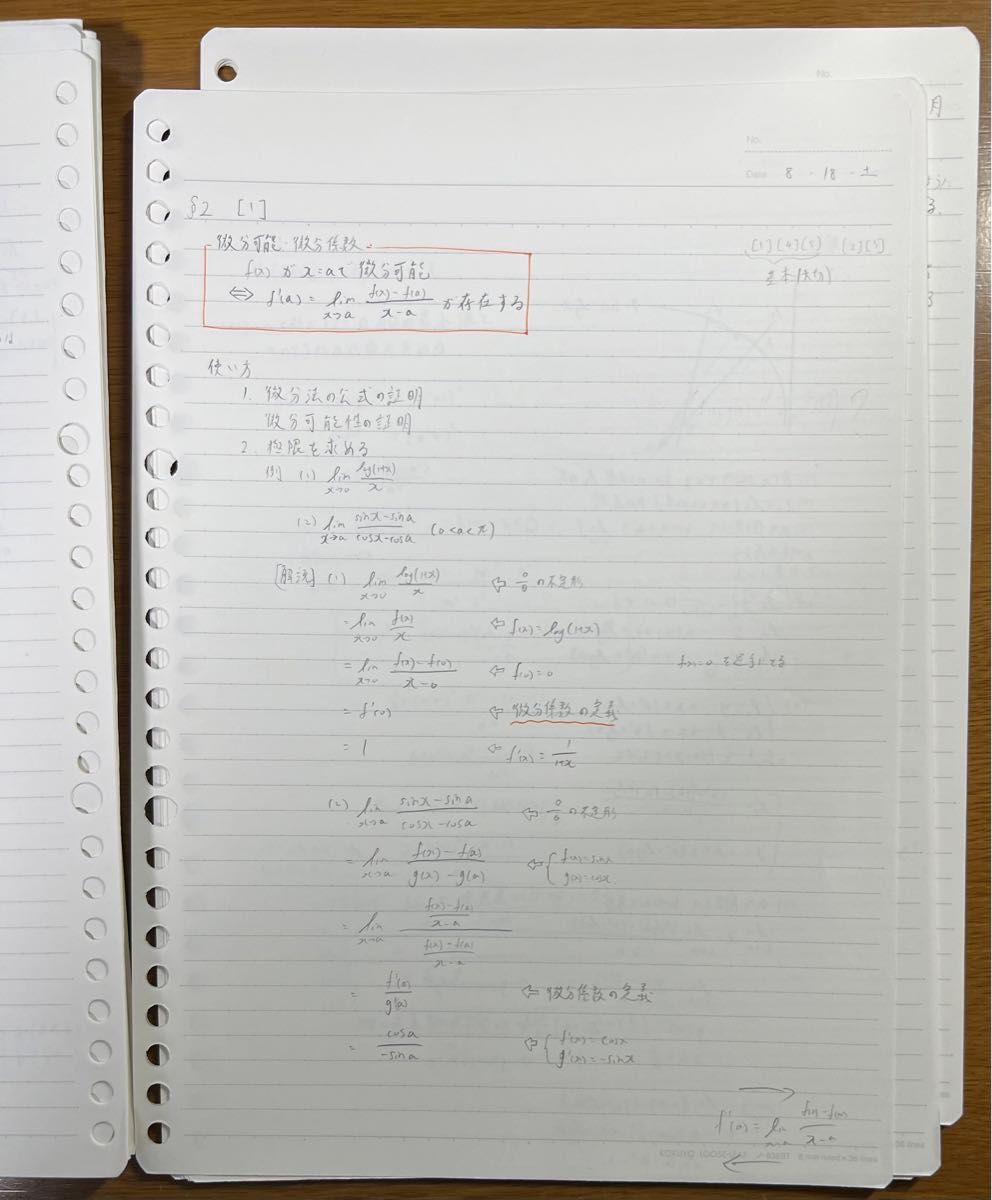 No.
No.
Date 8 ・ 18 ・ 土
月
§2 [1]
[1][4][5] [2][3]
微分可能・微分係数
f(x) が x=a で 微分可能
⇔ f'(a) = lim_{x→a} (f(x)-f(a))/(x-a) が存在する
使い方
1. 微分法の公式の証明
微分可能性の証明
2. 極限を求める
例 (1) lim_{x→0} log(1+x)/x
(2) lim_{x→a} (sinx-sina)/(cosx-cosa) (0<a<π)
[解説] (1) lim_{x→0} log(1+x)/x ⇦ 0/0 の不定形
= lim_{x→0} f(x)/x ⇦ f(x)=log(1+x)
= lim_{x→0} (f(x)-f(0))/(x-0) ⇦ f(0)=0
= f'(0) ⇦ 微分係数の定義
= 1 ⇦ f'(x)=1/(1+x)
(2) lim_{x→a} (sinx-sina)/(cosx-cosa) ⇦ 0/0 の不定形
= lim_{x→a} (f(x)-f(a))/(g(x)-g(a)) ⇦ { f(x)=sinx
g(x)=cosx
= lim_{x→a} ((f(x)-f(a))/(x-a))/((f(x)-f(a))/(x-a))
= f'(a)/g'(a) ⇦ 微分係数の定義
= cosa/-sina ⇦ { f'(x)=cosx
g'(x)=-sinx
f'(a) = lim_{x→a} (f(x)-f(a))/(x-a)
KOKUYO LOOSE-LEAF